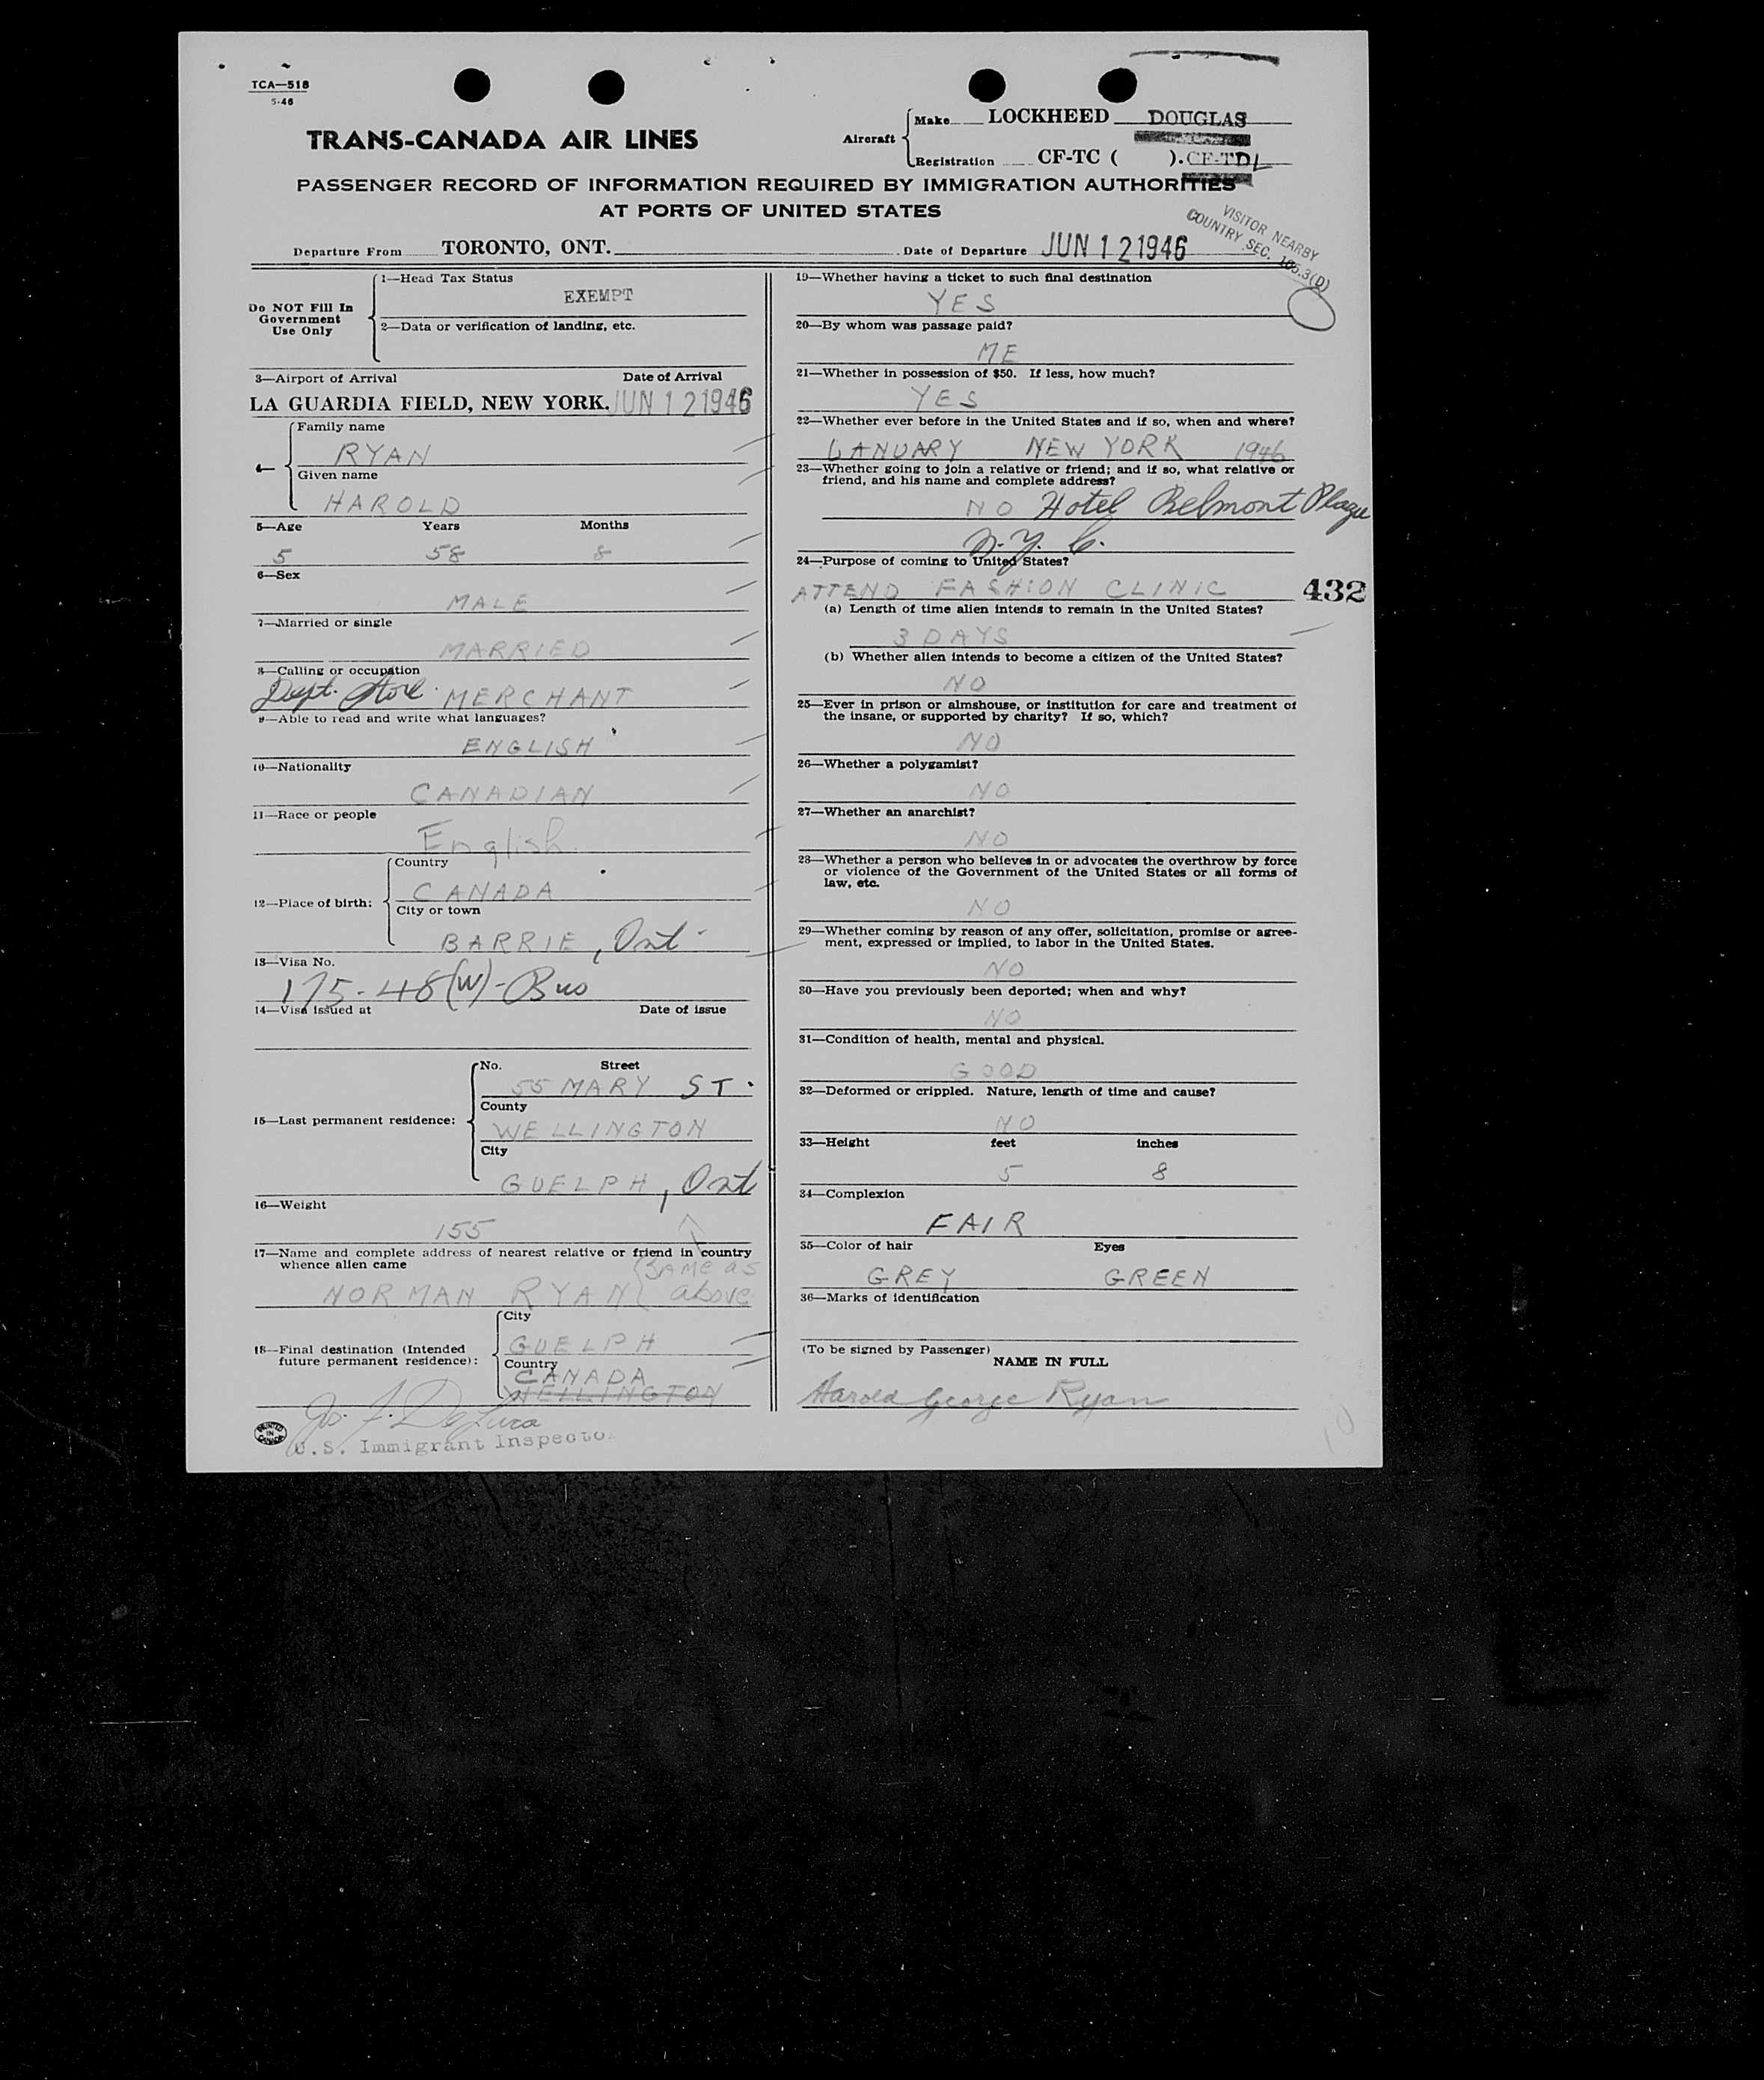 TCA—518
5-46
TRANS-CANADA AIR LINES
Aircraft
Make LOCKHEED DOUGLAS
Registration CF-TC ( ). CF-TDL
PASSENGER RECORD OF INFORMATION REQUIRED BY IMMIGRATION AUTHORITIES
AT PORTS OF UNITED STATES
VISITOR NEARBY
COUNTRY SEC. 165.3(D)
Departure From TORONTO, ONT. Date of Departure JUN 12 1946
Do NOT Fill In
Government
Use Only
1—Head Tax Status
EXEMPT
2—Data or verification of landing, etc.
3—Airport of Arrival Date of Arrival
LA GUARDIA FIELD, NEW YORK. JUN 12 1946
4—
Family name
RYAN
Given name
HAROLD
5—Age Years Months
5 58 8
6—Sex
MALE
7—Married or single
MARRIED
8—Calling or occupation
Dept. Store MERCHANT
9—Able to read and write what languages?
ENGLISH
10—Nationality
CANADIAN
11—Race or people
English
12—Place of birth:
Country
CANADA
City or town
BARRIE, Ont
13—Visa No.
175-48(W)-Bus
14—Visa issued at Date of issue
15—Last permanent residence:
No. Street
55 MARY ST.
County
WELLINGTON
City
GUELPH, Ont
16—Weight
155
17—Name and complete address of nearest relative or friend in country
whence alien came
NORMAN RYAN { SAME as
above
18—Final destination (Intended
future permanent residence):
City
GUELPH
Country
CANADA
WELLINGTON
Jos. J. DeLuca
U.S. Immigrant Inspector
PRINTED
IN
CANADA
19—Whether having a ticket to such final destination
YES
20—By whom was passage paid?
ME
21—Whether in possession of $50. If less, how much?
YES
22—Whether ever before in the United States and if so, when and where?
JANUARY NEW YORK 1946
23—Whether going to join a relative or friend; and if so, what relative or
friend, and his name and complete address?
NO Hotel Belmont Plaza
N.Y.C.
24—Purpose of coming to United States?
ATTEND FASHION CLINIC
432
(a) Length of time alien intends to remain in the United States?
3 DAYS
(b) Whether alien intends to become a citizen of the United States?
NO
25—Ever in prison or almshouse, or institution for care and treatment of
the insane, or supported by charity? If so, which?
NO
26—Whether a polygamist?
NO
27—Whether an anarchist?
NO
28—Whether a person who believes in or advocates the overthrow by force
or violence of the Government of the United States or all forms of
law, etc.
NO
29—Whether coming by reason of any offer, solicitation, promise or agree-
ment, expressed or implied, to labor in the United States.
NO
30—Have you previously been deported; when and why?
NO
31—Condition of health, mental and physical.
GOOD
32—Deformed or crippled. Nature, length of time and cause?
NO
33—Height feet inches
5 8
34—Complexion
FAIR
35—Color of hair Eyes
GREY GREEN
36—Marks of identification
(To be signed by Passenger)
NAME IN FULL
Harold George Ryan
10